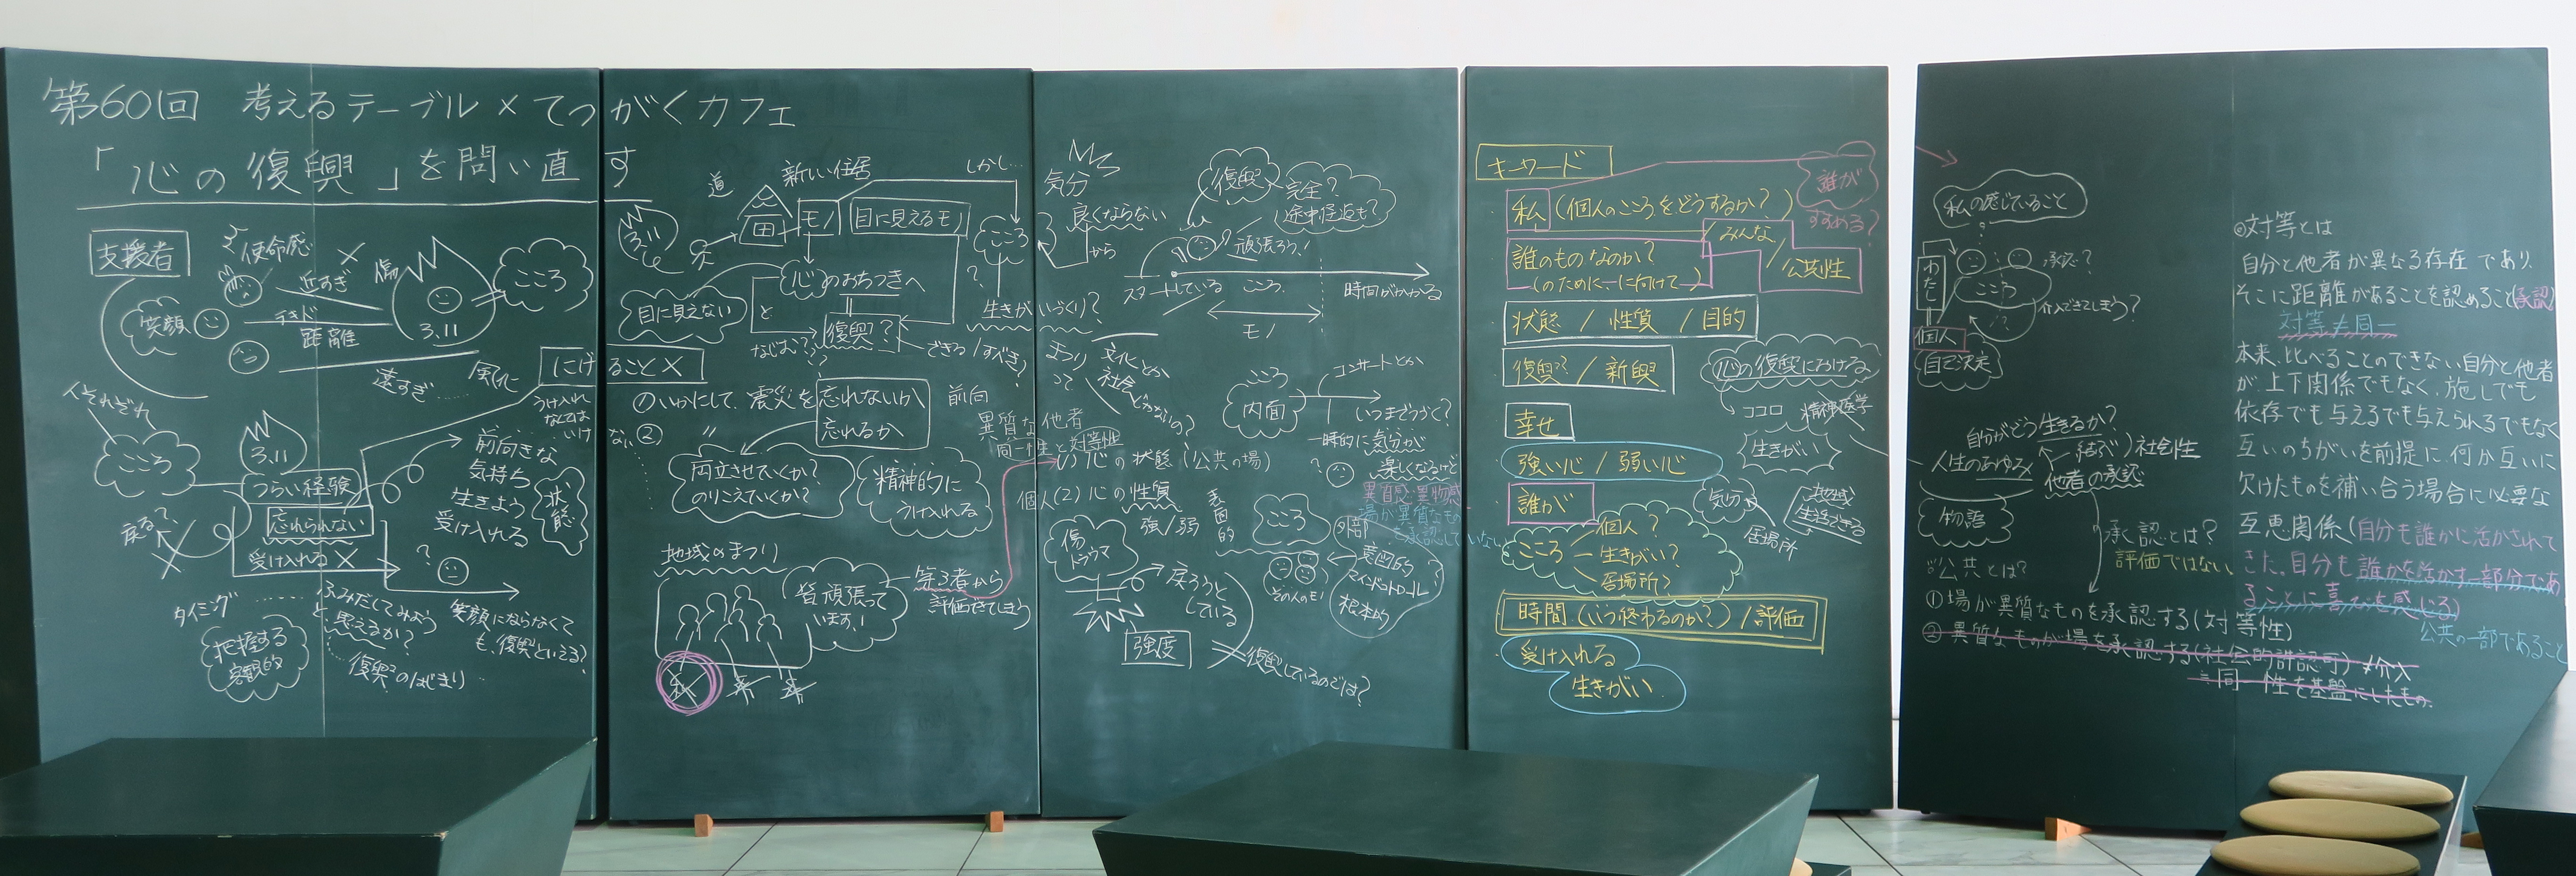 第60回 考えるテーブル×てつがくカフェ
「心の復興」を問い直す
支援者
使命感
近すぎ
×
傷
こころ
笑顔
距離
3.11
遠すぎ
風化
にげることX
うけ入れなくてはいけない
人それぞれ
こころ
3.11
つらい経験
忘れられない
受け入れる X
戻る?
前向きな
気持ち
生きよう
受け入れる
状態
?
タイミング
ふみだしてみよう
と思えるか?
復興のはじまり
把握する
客観的
笑顔にならなくて
も、復興といえる?
道
新しい住居
しかし…
3.11
モノ
目に見えるモノ
こころ
?
生きがいづくり?
心のおちつきへ
目に見えない
と
復興?
なじむ??
できる/すべき?
のいかにして、震災を
忘れないか
忘れるか
前向
②
〃
両立させていくか?
のりこえていくか?
精神的に
うけ入れる
地域のまつり
皆頑張って
います!
第3者から
評価できてしまう
私
気分
良くならない
から
復興
完全?
途中経過も?
頑張ろう!
スタートしている
こころ
時間がかかる
モノ
まつり
って
文化とか
社会
とかなの?
こころ
内面
コンサートとか
いつまでつづく?
一時的に気分が
楽しくなるけど
?
異質な他者
同一性と対等性
(1)心の状態(公共の場)
個人(2)心の性質
強/弱
表面的
異質感・異物感
場が異質なもの
を承認していない
傷
トラウマ
戻ろうと
している
強度
復興しているのでは?
こころ
外部
その人のモノ
意図的
マインドコントロール
根本的
?
キーワード
私(個人のこころをどうするか?)
誰が
すすめる?
誰のものなのか?
(のために―に向けて―)
/みんな/公共性
状態 / 性質 / 目的
復興?? / 新興
幸せ
強い心 / 弱い心
誰が
こころ
個人?
生きがい?
居場所?
時間(いつ終わるのか?)/評価
受け入れる
生きがい
心の復興における
ココロ
精神医学
生きがい
気分
居場所
地域
生活できる
私の感じていること
わたし
個人
自己決定
承認?
こころ
介入できてしまう?
自分がどう生きるか?
人生のあゆみ
結ぶ)社会性
他者の承認
物語
承認とは?
評価ではない
◎公共とは?
①場が異質なものを承認する(対等性)
②異質なものが場を承認する(社会的許認可)≠介入
=同一性を基盤にしたもの
◎対等とは
自分と他者が異なる存在であり、
そこに距離があることを認めること(承認)
対等≠同一
本来、比べることのできない自分と他者
が、上下関係でもなく、施しでも
依存でも与えるでも与えられるでもなく
互いのちがいを前提に、何か互いに
欠けたものを補い合う場合に必要な
互恵関係(自分も誰かに活かされて
きた。自分も誰かを活かす一部分であ
ることに喜びを感じる)
公共の一部であること